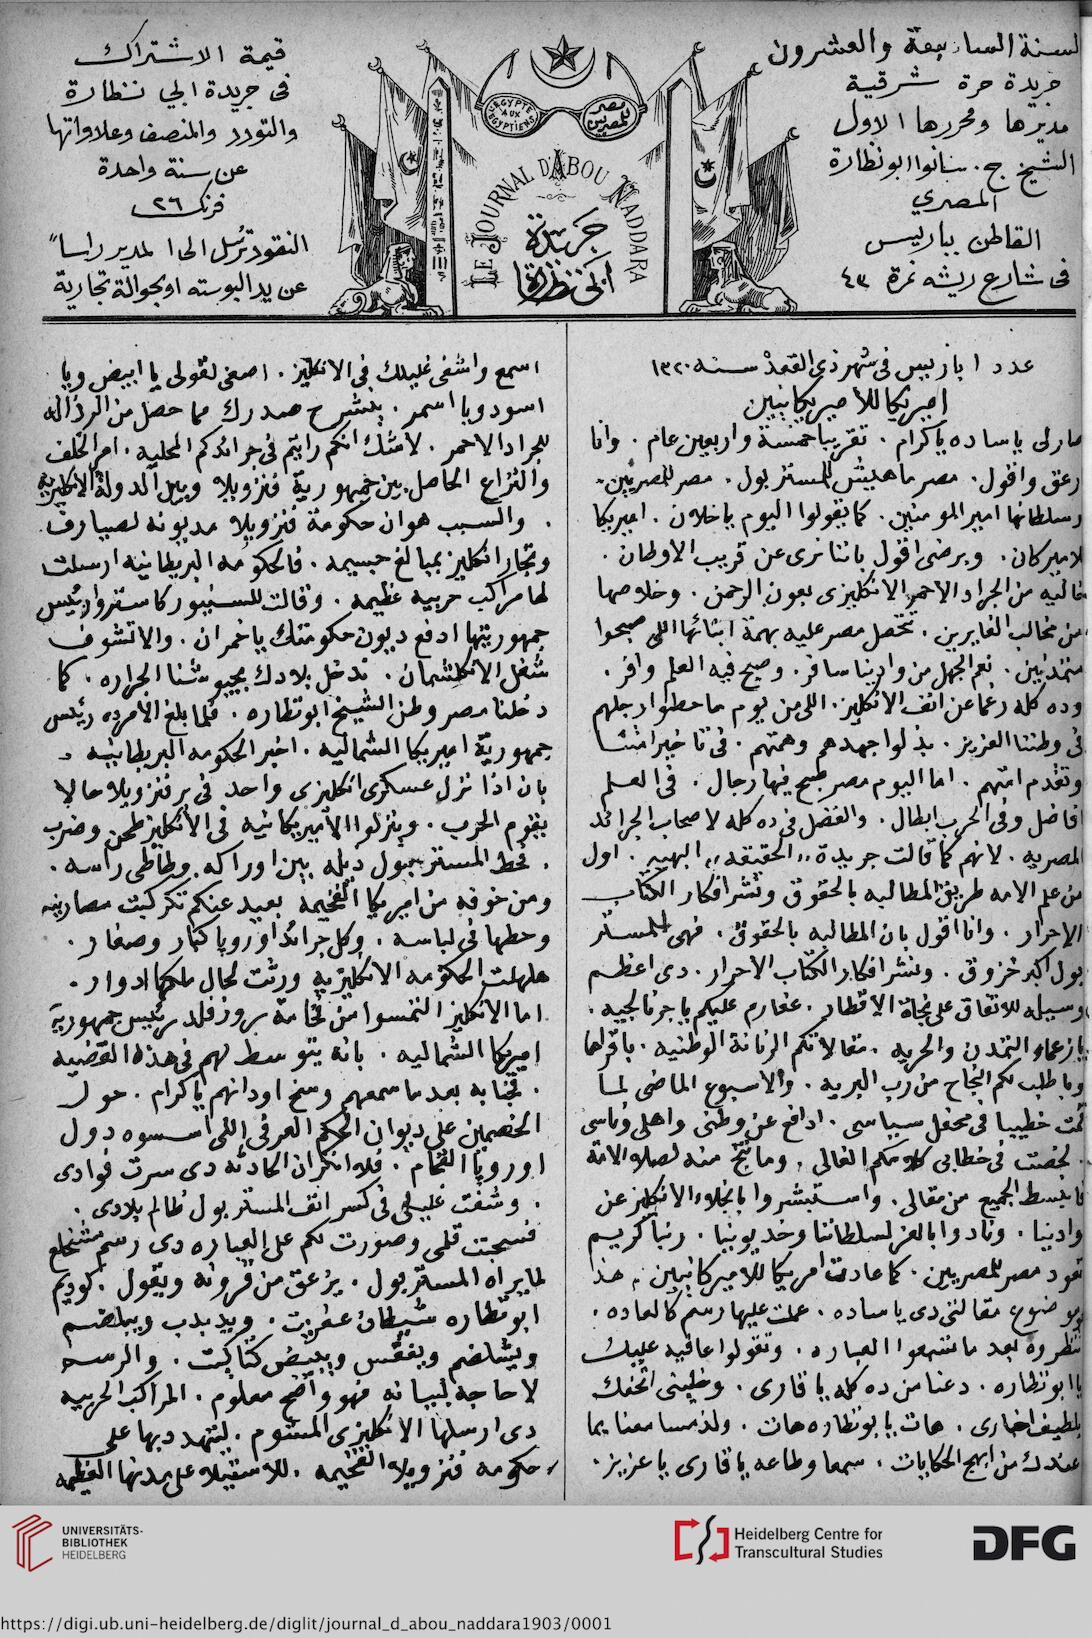 السنة السابعة والعشرون
جريدة حرة شرقية
مديرها ومحررها الاول
الشيخ ج. سانوا ابو نظارة
المصري
القاطن بباريس
فى شارع ريشه نمرة ٤٣
EGYPTE
AUX
EGYPTIENS
مصر
للمصريين
LE JOURNAL D'ABOU NADDARA
جريدة
ابى نظارة
قيمة الاشتراك
فى جريدة ابي نظارة
والتودد والمنصف وعلاواتها
عن سنة واحدة
فرنك ٢٦
النقود ترسل الى المدير راسا"
عن يد البوسته او بحوالة تجارية
عدد ١ باريس فى شهر ذى القعدة سنه ١٣٢٠
اميريكا للاميريكانيين
صار لى ياساده ياكرام . تقريبا خمسة واربعين عام . وانا
زعق واقول . مصر ماهيش للمستر بول . مصر للمصريين .
وسلطانها امير المومنين . كما يقولوا اليوم ياخلان . اميريكا
للاميركان . وبرضى اقول باننا نرى عن قريب الاوطان .
خاليه من الجراد الاحمر الانكليزى بعون الرحمن . وخلاصها
من مخالب الغايرين . تحصل مصر عليه بهمة ابنائها اللى صبحوا
متمدنين . نعم الجهل من وادينا سافر . وصبح فيه العلم وافر .
وده كله رغما عن انف الانكليز . اللى من يوم ماحطوا رجلهم
فى وطننا العزيز . بذلوا جهدهم وهمتهم . فى تاخير امتنا
وتقدم امتهم . اما اليوم مصر صبح فيها رجال . فى العلم
افاضل وفى الحرب ابطال . والفضل فى ده كله لاصحاب الجرائد
المصريه . لانهم كما قالت جريدة ,, الحقيقه ,, البهيه . اول
من علم الامه طريق المطالبه بالحقوق ونشر افكار الكتاب
الاحرار . وانا اقول بان المطالبه بالحقوق . فهى للمستر
بول اكبر خزوق . ونشر افكار الكتاب الاحرار . دى اعظم
وسيله للاتفاق على نجاة الاقطار . عفارم عليكم ياجرنالجيه .
يازعماء التمدن والحريه . مقالاتكم الرنانة الوطنيه . باقراها
وباطلب لكم النجاح من رب البريه . والاسبوع الماضى لما
قمت خطيبا فى محفل سياسى . ادافع عن وطنى واهلى وناسى
. لخصت فى خطابى كلامكم الغالى . وما ينتج منه لصلاح الامة
فانبسط الجميع من مقالى . واستبشروا بانجلاء الانكليز عن
وادينا . ونادوا بالعز لسلطاننا وخديوينا . ربنا كريم
تعود مصر للمصريين . كما عادت امريكا للاميركانيين ,, هذ
موضوع مقالتى دى ياساده . عملت عليها رسم كالعاده .
تنظروه بعد ماتسمعوا العباره . وتقولوا عافيه عليك
يا ابو نظاره . دعنا من ده كله يا قارى . وخلينى اتحفك
بلطيف اخبارى . هات يابو نظاره هات . ولذ مسامعنا بما
عندك من ابهج الحكايات . سمعا وطاعه يا قارى ياعزيز .
اسمع واشفى غليلك فى الانكليز . اصغى لقولى يا ابيض ويا
اسود ويا اسمر . ينشرح صدرك مما حصل من الرذاله
للجراد الاحمر . لاشك انكم رايتم فى جرائدكم المحليه . امر الخلف
والنزاع الحاصل بين جمهورية فنزويلا وبين الدولة الانكليزيه
. والسبب هو ان حكومة فنزويلا مديونه لصيارف
وتجار انكليز بمبالغ جسيمه . فالحكومه البريطانيه ارسلت
لها مراكب حربيه عظيمه . وقالت للسنيور كاسترو رئيس
جمهوريتها ادفع ديون حكومتك ياخمران . والا تشوف
شغل الانكلشمان . ندخل بلادك بجيوشنا الجراره . كما
دخلنا مصر وطن الشيخ ابو نظاره . فلما بلغ الامر ده رئيس
جمهورية اميريكا الشماليه . اخبر الحكومه البريطانيه .
بان اذا نزل عسكرى انكليزى واحد فى بر فنزويلا حالا
يقوم الحرب . وينزلوا الاميريكانيه فى الانكليز طحن وضرب
. فحط المستر بول ديله بين اوراكه وطاطى راسه .
ومن خوفه من اميريكا الفخيمه بعيد عنكم تكركبت مصارينه
وحطها فى لباسه . وكل جرائد اوروپا كبار وصغار .
هلهلت الحكومه الانكليزيه ورثت لحال ملكها ادوار .
اما الانكليز التمسوا من فخامة روزفلد رئيس جمهورية
اميريكا الشماليه . بانه يتوسط لهم فى هذه القضيه
. فجنابه بعد ما سمعهم وسخ اودانهم ياكرام . حول
الخصمين على ديوان الحكم العرفى اللى اسسوه دول
اوروپا الفخام . فلا نكران الحادثه دى سرت فوادى
. وشفت غليلى فى كسر انف المستر بول ظالم بلادى .
فسحبت قلمى وصورت لكم على العباره دى رسم مشخلع
لما يراه المستر بول . يزعق من قرونه ويقول . كوديم
ابو نظاره شيطان عفريت . ويدبدب ويبلضم
ويشلضم ويفقس ويبيض كتاكيت . والرسم
لا حاجة لبيانه فهو واضح معلوم . المراكب الحربيه
دى ارسلها الانكليزى المشوم . ليتهدد بها على
حكومه فنزويلا الفخيمه . للاستيلاء على مدنها العظيمه
UNIVERSITÄTS-
BIBLIOTHEK
HEIDELBERG
Heidelberg Centre for
Transcultural Studies
DFG
https://digi.ub.uni-heidelberg.de/diglit/journal_d_abou_naddara1903/0001